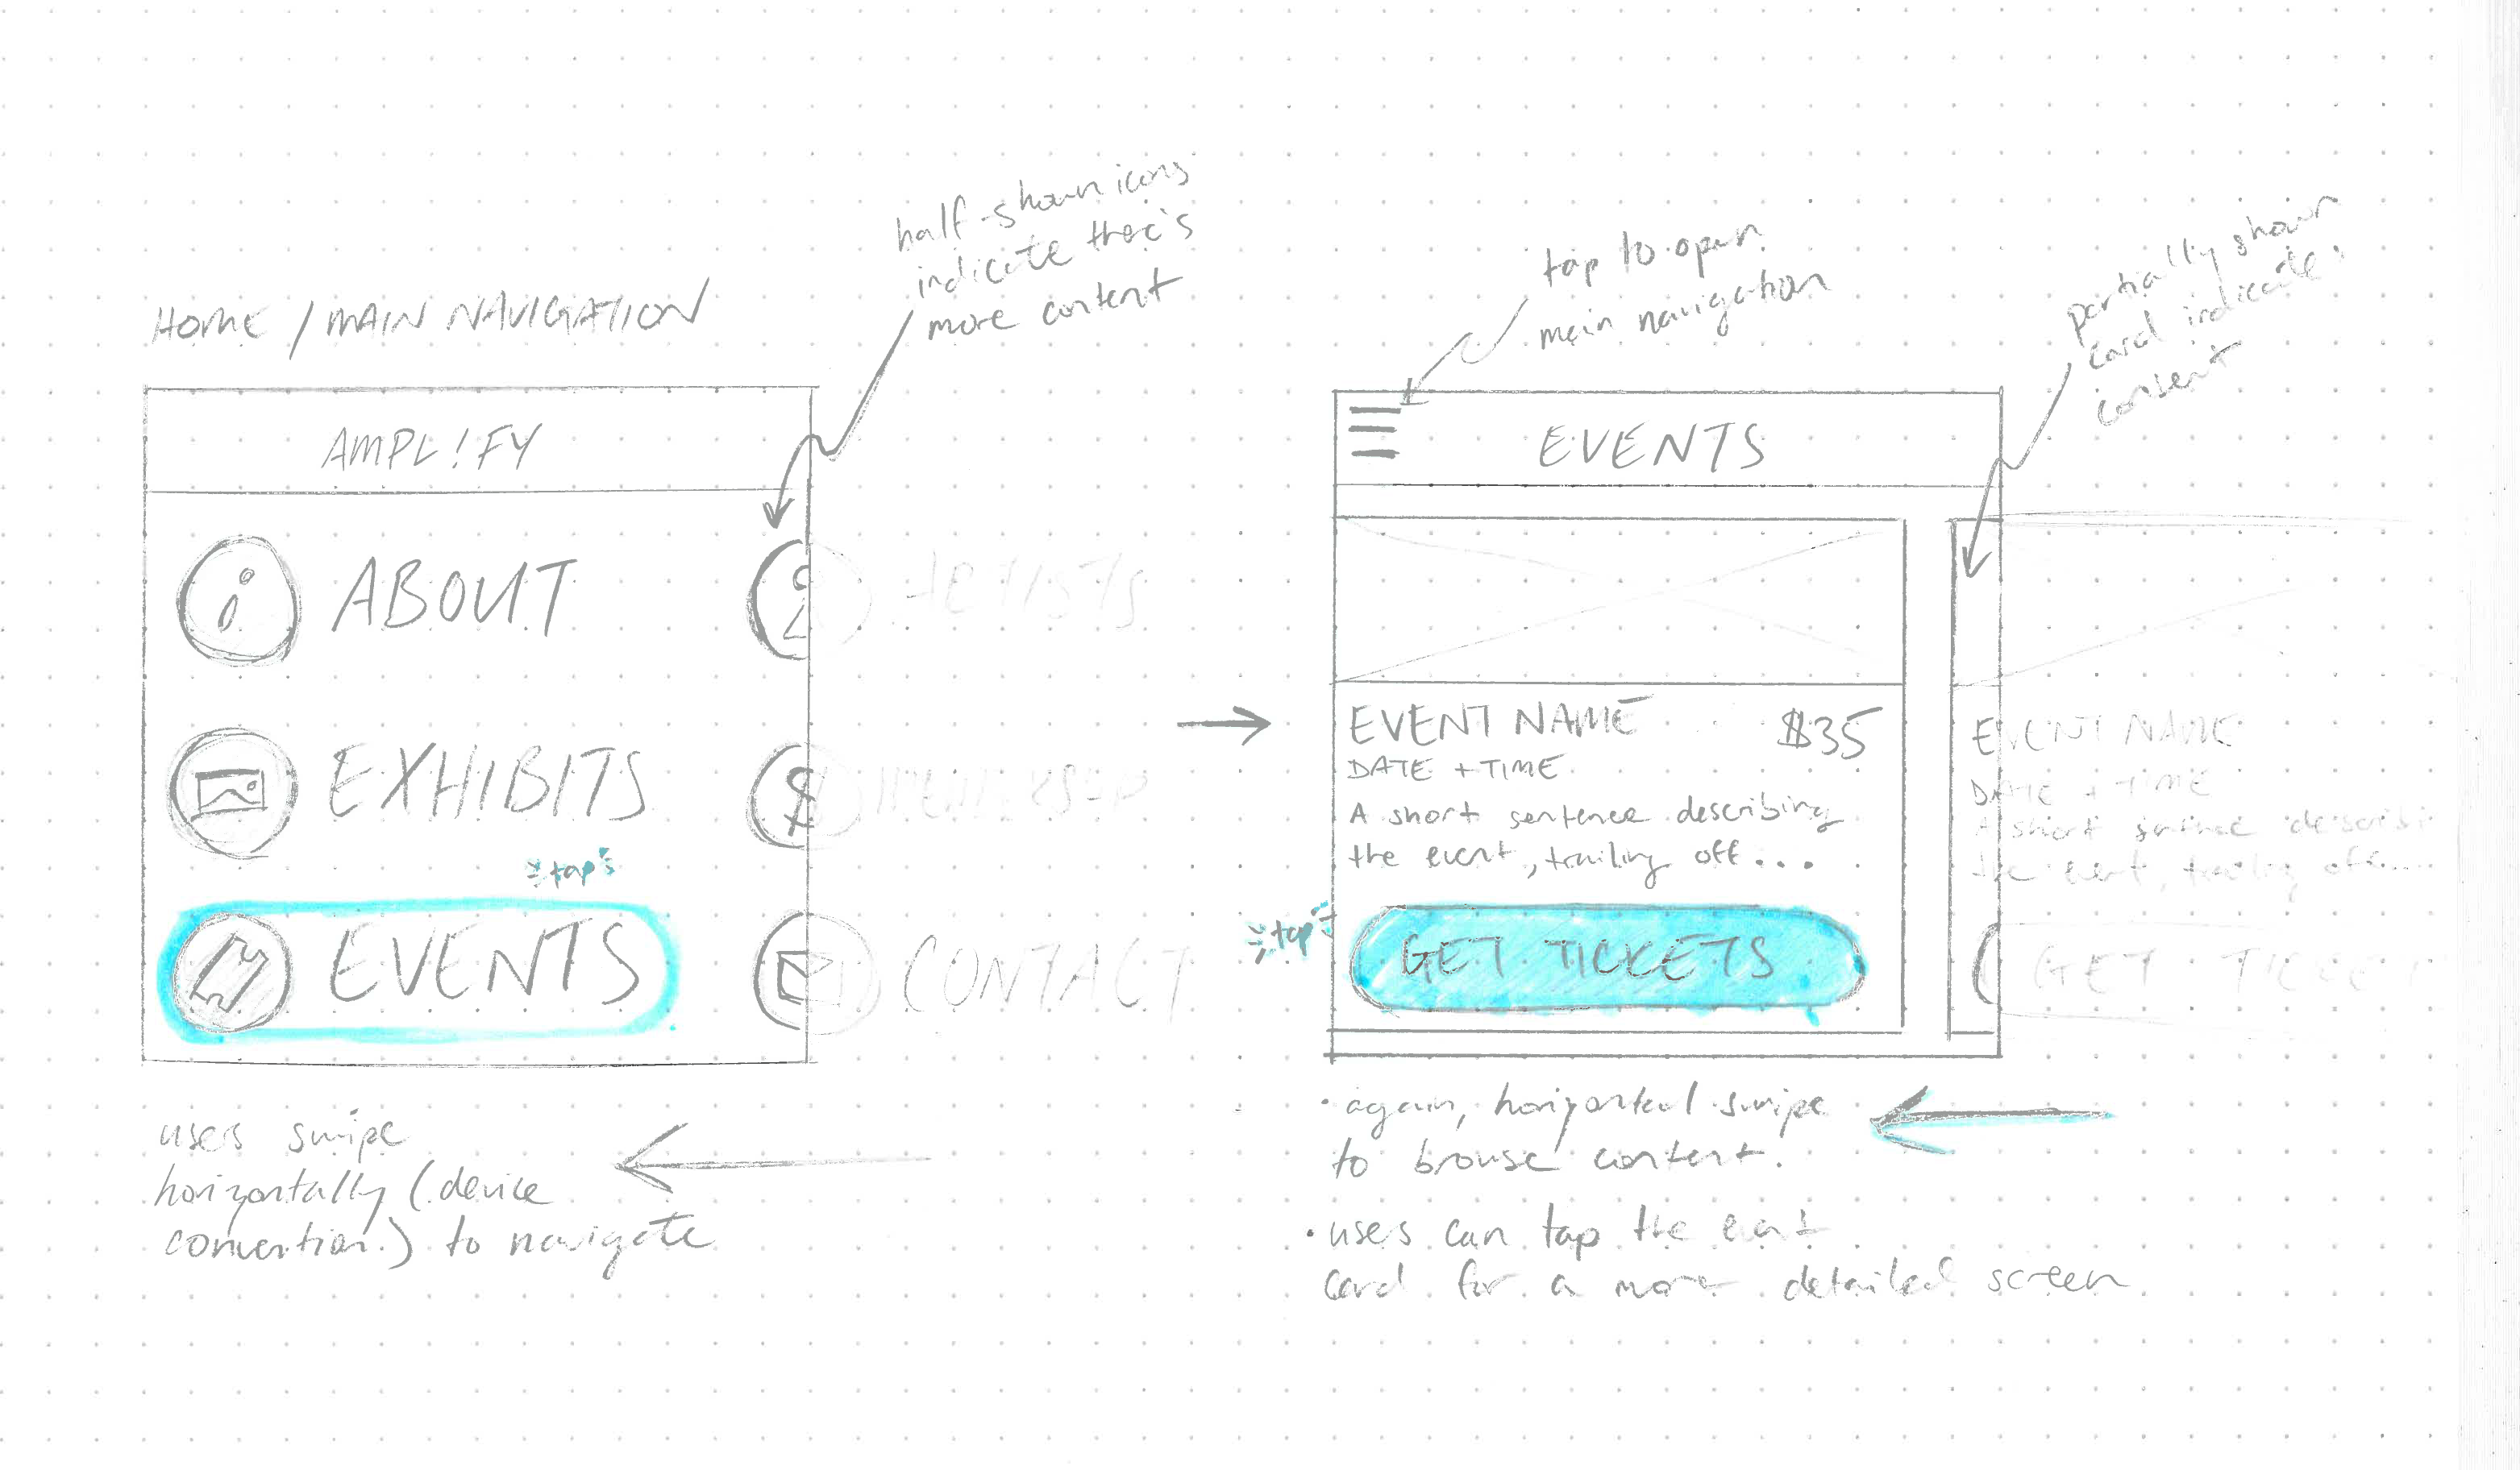 HOME / MAIN NAVIGATION
half-shown icons
indicate there's
more content
AMPL!FY
ABOUT
ARTISTS
EXHIBITS
MEMBERSHIP
tap
EVENTS
CONTACT
users swipe
horizontally (device
convention) to navigate
tap to open
main navigation
partially shown
card indicate
EVENTS
EVENT NAME
$35
DATE + TIME
A short sentence describing
the event, trailing off...
tap
GET TICKETS
EVENT NAME
DATE + TIME
A short sentence describi
the event, trailing off...
GET TICKET
• again, horizontal swipe
to browse content.
• users can tap the event
card for a more detailed screen